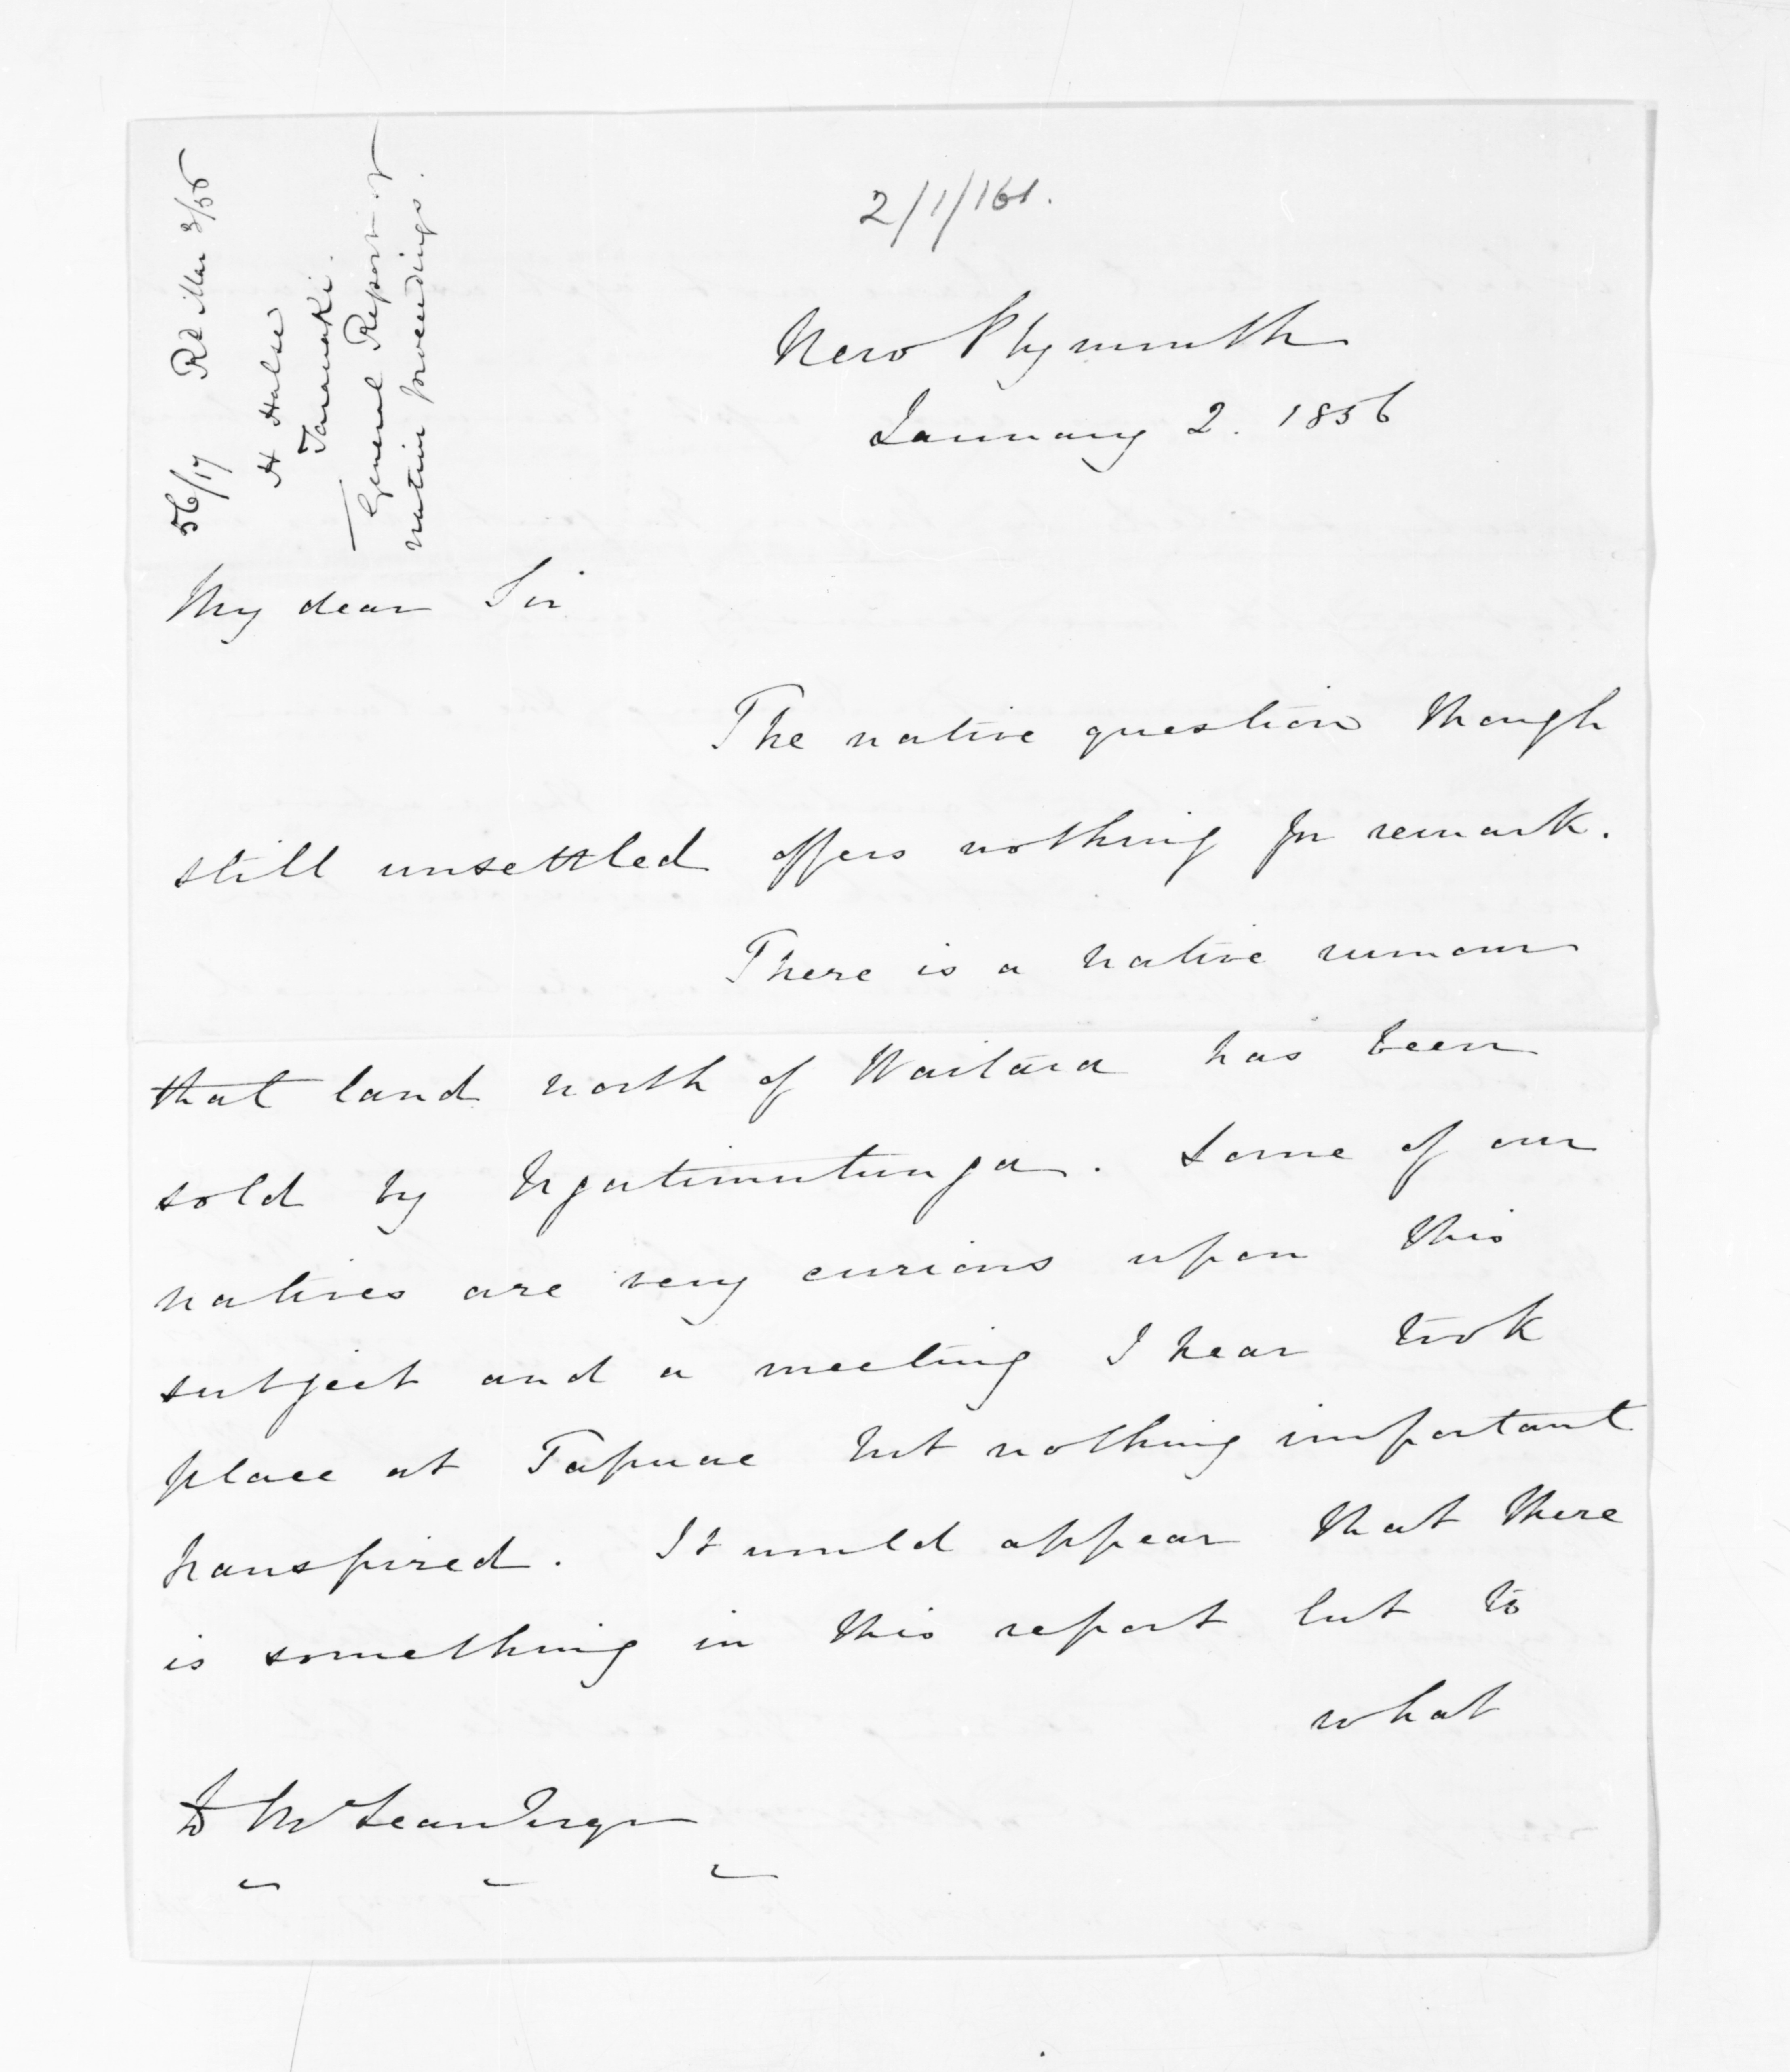 56/17 Rd Mar 3/56
H Halse
Taranaki.
General Report of
native proceedings.
2/1/161.
New Plymouth
January 2. 1856
My dear Sir
The native question though
still unsettled offers nothing for remark.
There is a native rumour
that land north of Waitara has been
sold by Ngatimutunga. Some of our
natives are very curious upon this
subject and a meeting I hear took
place at Tapuae but nothing important
transpired. It would appear that there
is something in this report but to
what
D McLean Esqre